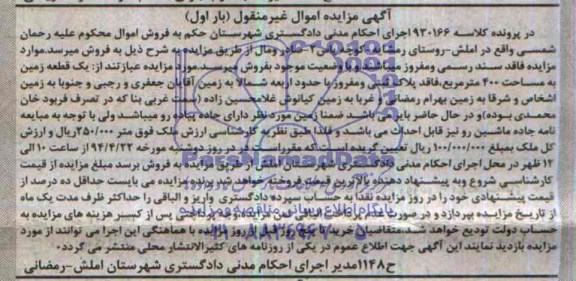 آگهی مزایده اموال غیرمنقول (بار اول)
در پرونده کلاسه ۹۳۰۱۶۶ اجرای احکام مدنی دادگستری شهرستان حکم به فروش اموال محکوم علیه رحمان
شمسی واقع در املش-روستای صادر ومال از طریق مزایده به شرح ذیل به فروش میرسد.موارد
مزایده فاقد سند رسمی ومفروز میباشد و با وضعیت موجود بفروش میرسد.مورد مزایده عبارتند از: یک قطعه زمین
به مساحت ۴۰۰ مترمربع،فاقد پلاک ثبتی ومفروز با حدود اربعه شمالا به زمین آقایان جعفری و رجبی و جنوبا به زمین
اشخاص و شرقا به زمین بهرام رمضانی و غربا به زمین کیانوش غلامحسین زاده (سمت غربی بنا که در تصرف فربود خان
محمدی بوده)و در حال حاضر بایر می باشد ضمنا زمین مورد نظر دارای جاده پیاده رو میباشد ولی با توجه به مبایعه
نامه جاده ماشین رو نیز قابل احداث می باشد و فلذا طبق نظریه کارشناسی ارزش ملک فوق متر ۲۵۰/۰۰۰ریال و ارزش
کل ملک بمبلغ ۱۰۰/۰۰۰/۰۰۰ ریال تعیین گردیده است که مقرراست در روز دوشنبه مورخه ۹۴/۴/۲۲ از ساعت ۱۰ الی
۱۲ ظهر در محل اجرای احکام مدنی دادگستری شهرستان املش از طریق مزایده به فروش برسد مبلغ مزایده از قیمت
کارشناسی شروع وبه پیشنهاد دهنده بالاترین قیمت فروخته خواهد شد برنده مزایده می بایست حداقل ده درصد از
قیمت پیشنهادی خود را در روز مزایده نقدا به حساب سپرده دادگستری واریز و الباقی را حداکثر ظرف مدت یک ماه
از تاریخ مزایده بپردازد و در صورت عدم پرداخت الباقی ثمن پس از کسر هزینه های مزایده به
حساب دولت تودیع خواهد شد متقاضیان خرید روز مزایده با هماهنگی این اجرا می توانند از مورد
مزایده بازدید نمایند این آگهی جهت اطلاع عموم در یکی از روزنامه های کثیرالانتشار محلی منتشر می گردد.
ح۱۱۴۸مدیر اجرای احکام مدنی دادگستری شهرستان املش-رمضانی
ParsNamadData
پایگاه اطلاع رسانی مناقصه و مزایده